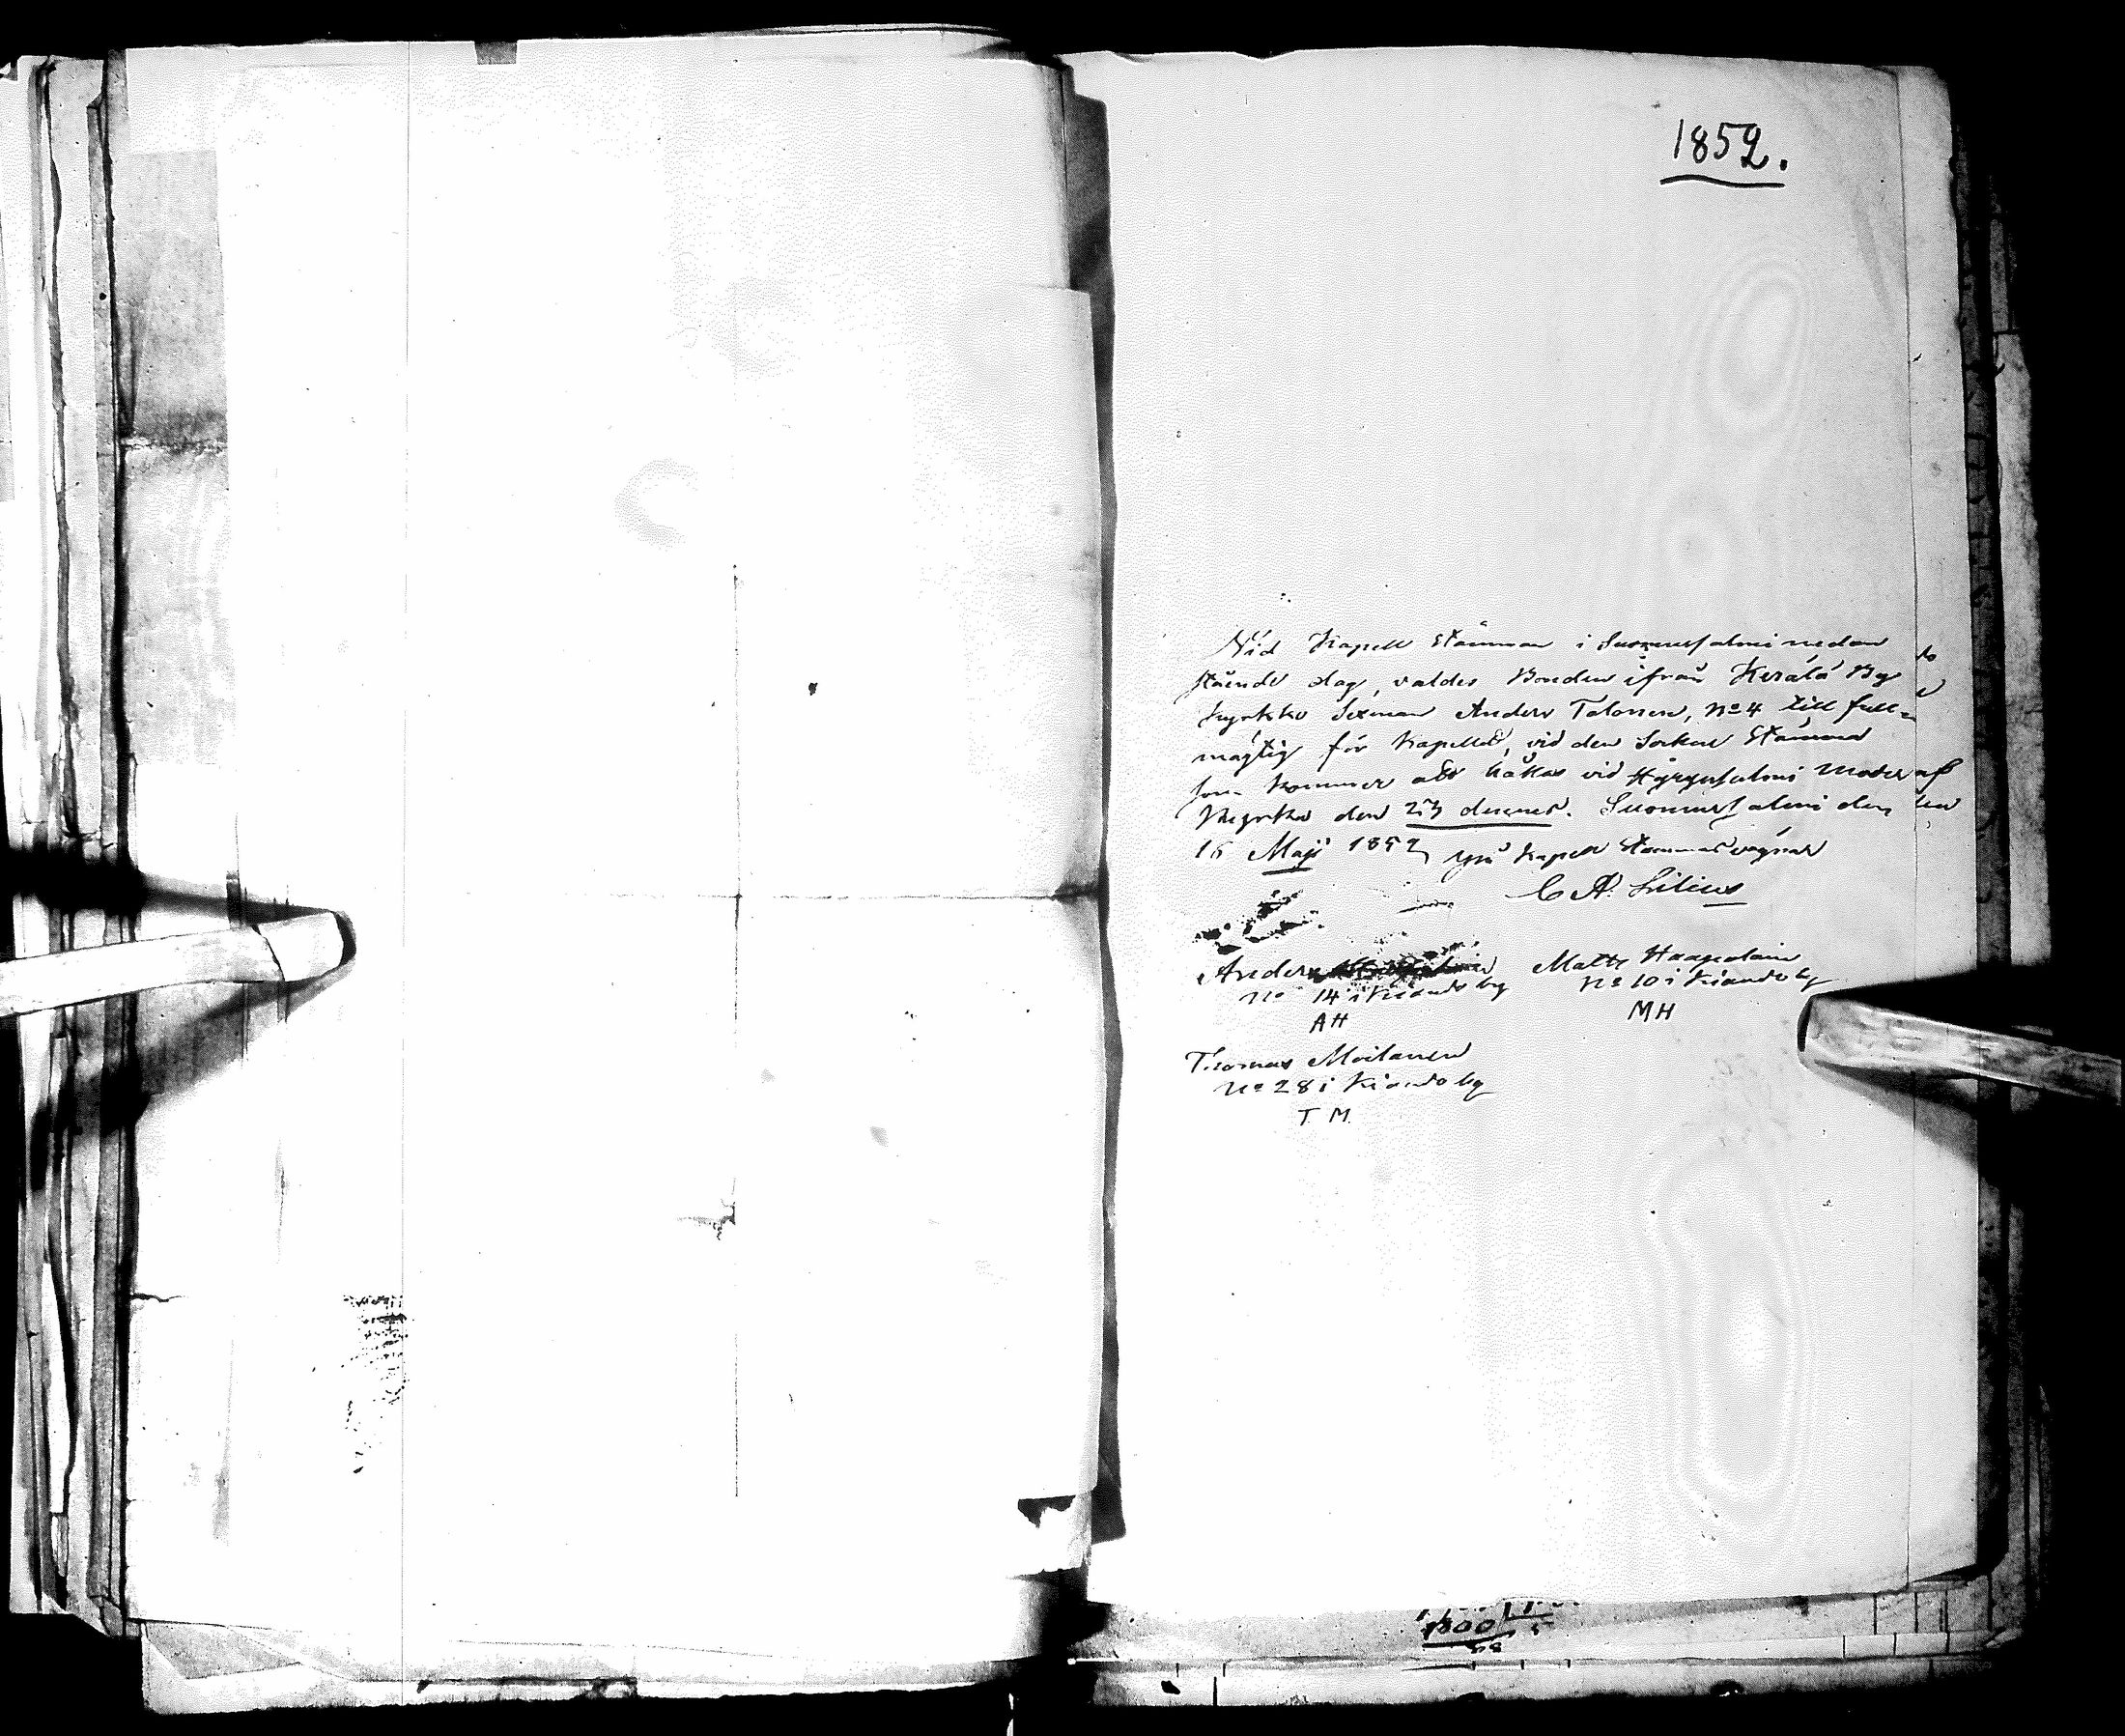 1852.
Vid Kapell Stämman i Suomusalmi nedan
stående dag, valdes Bonden ifrån Kerälä By
Kyrkko Sexman Anders Talonen, No 4 till full=
mägtig för Kapellet, vid den Sockne Stämma
som kommer att hållas vid Hyrynsalmi Moder
Kyrka den 23 dennes. Suomussalmi den
16 Maji 1852 på Kapell Stämmas vägnar
C A. Lilius
Anders
No 14 i Kiando by
AH
Matts Haapalain
No 10 i Kiando by
MH
Thomas Moilanen
No 28 i Kiando by
T. M.
1800